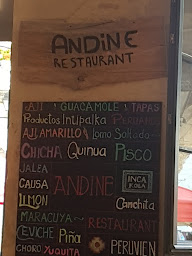 ANDINE
RESTAURANT
AJI GUACAMOLE TAPAS
Productos Intipalka PERUANOS
AJI AMARILLO Lomo Saltado
CHICHA Quinua PISCO
JALEA
CAUSA ANDINE INCA
KOLA
LIMON Canchita
MARACUYA RESTAURANT
CEVICHE Piña PERUVIEN
CHORO YUQUITA